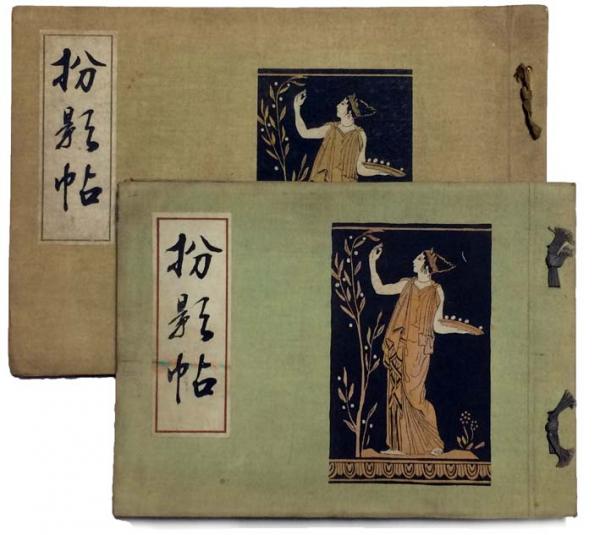 扮影帖
扮影帖